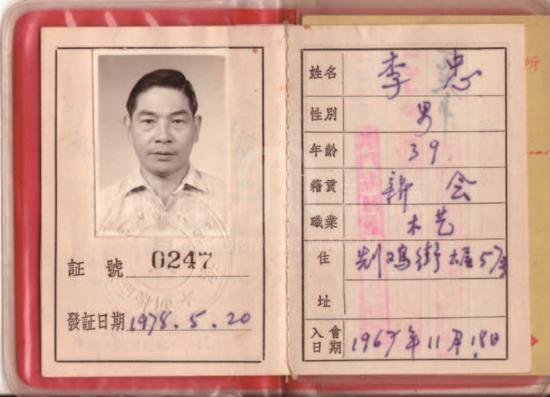 証號 0247
發証日期 1978.5.20
姓名 李忠
性別 男
年齡 39
籍貫 新会
職業 木艺
住址
街 57号
入會日期 11月18日
所